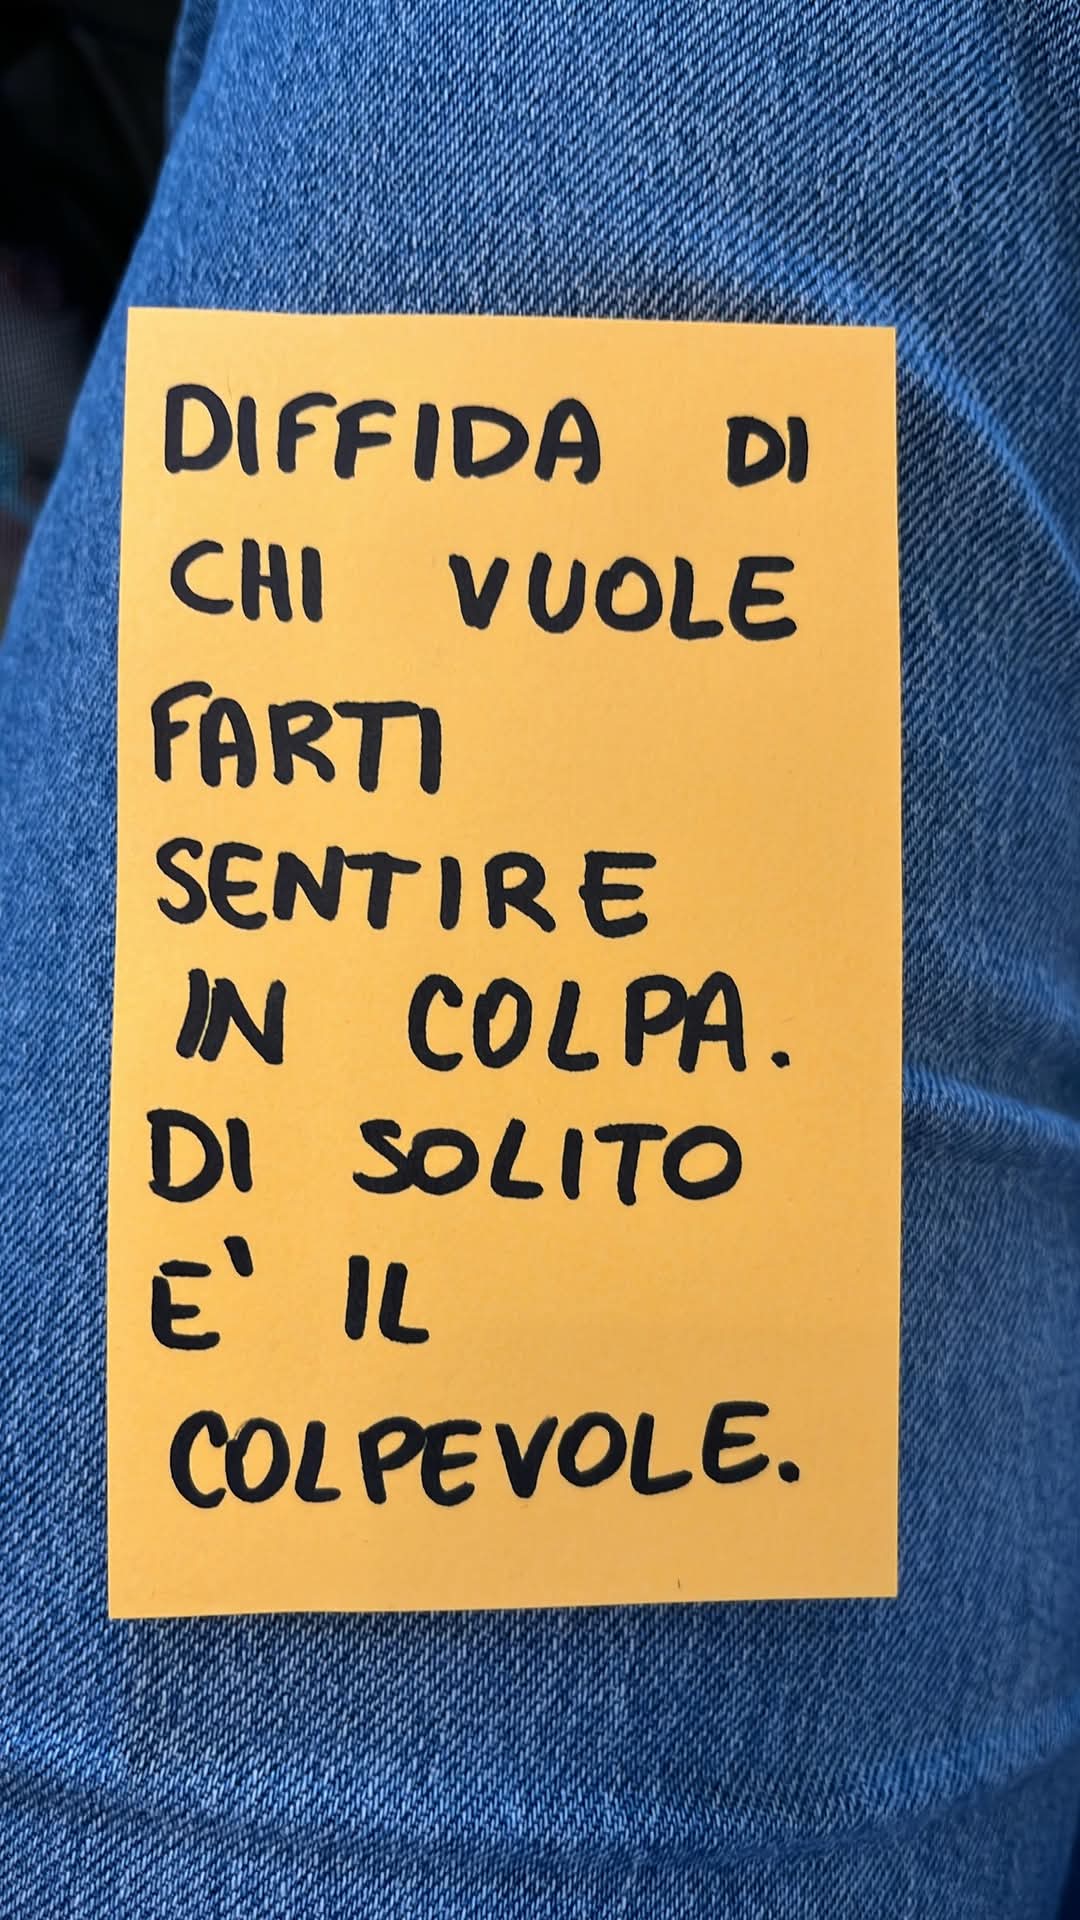 DIFFIDA DI
CHI VUOLE
FARTI
SENTIRE
IN COLPA.
DI SOLITO
E' IL
COLPEVOLE.